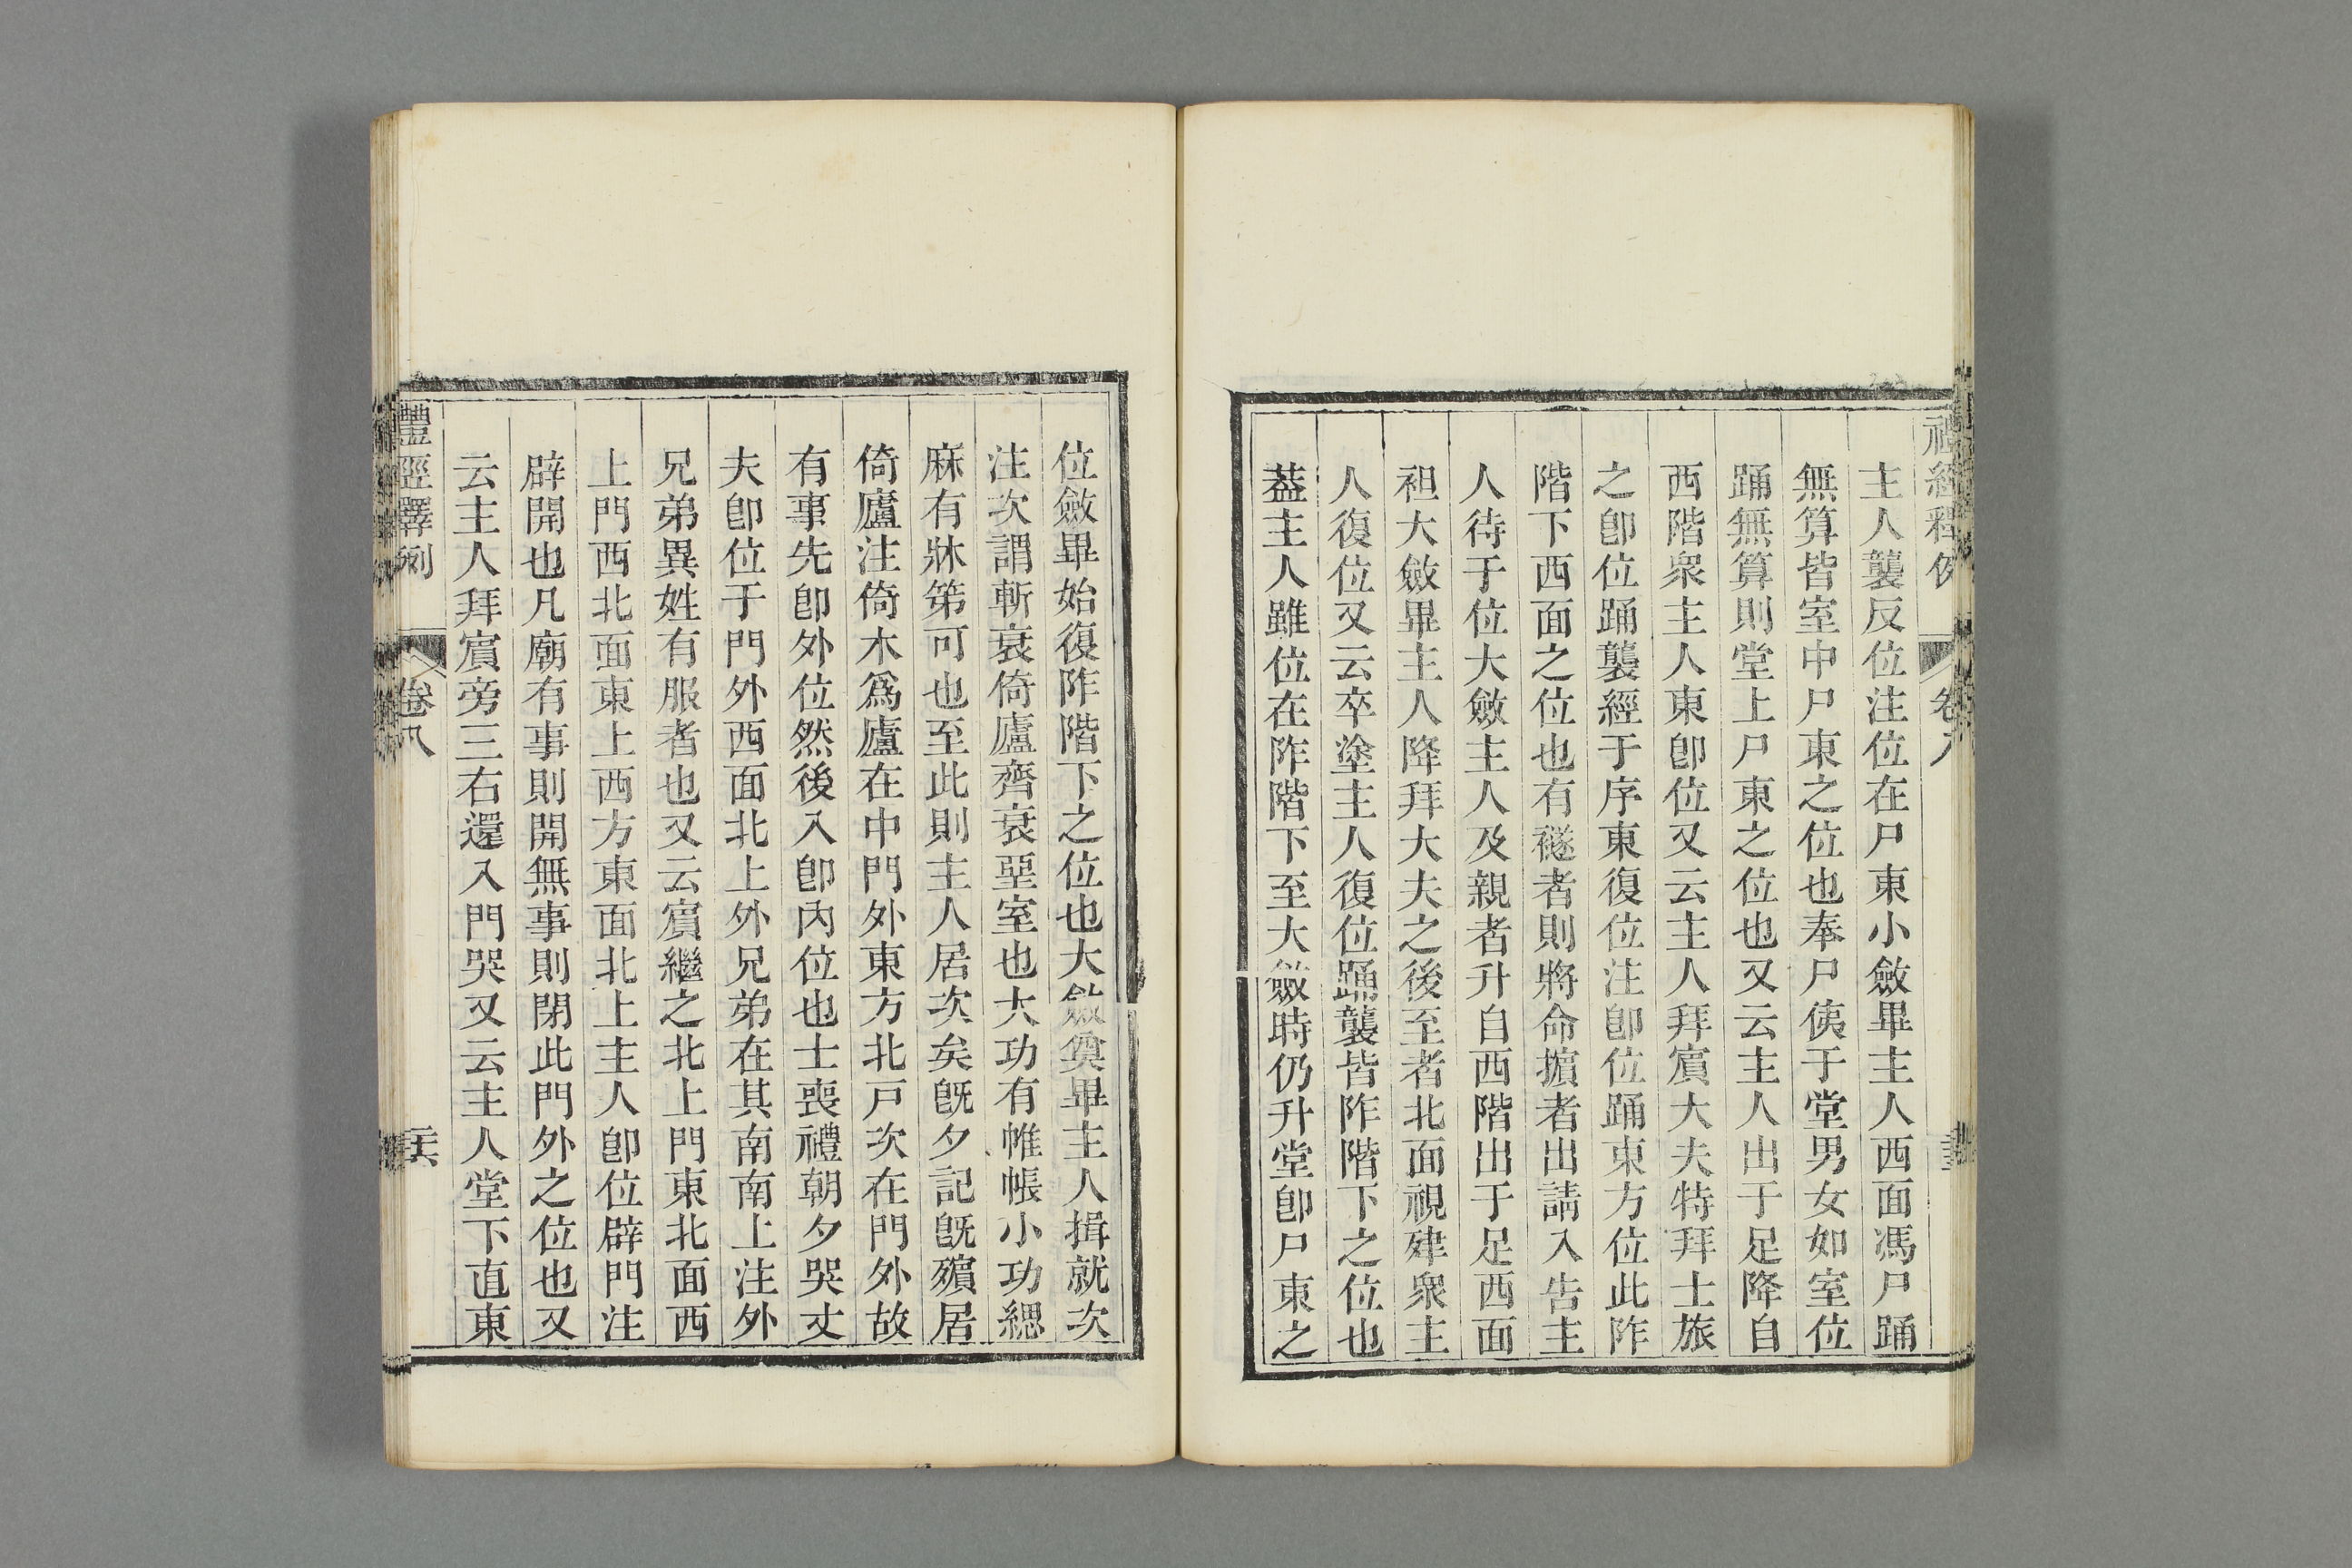 禮經釋例 卷八
主人襲反位注位在尸東小斂畢主人西面馮尸踊
無算皆室中尸東之位也奉尸侇于堂男女如室位
踊無算則堂上尸東之位也又云主人出于足降自
西階衆主人東卽位又云主人拜賓大夫特拜士旅
之卽位踊襲絰于序東復位注卽位踊東方位此阼
階下西面之位也有襚者則將命擯者出請入告主
人待于位大斂主人及親者升自西階出于足西面
袒大斂畢主人降拜大夫之後至者北面視肂衆主
人復位又云卒塗主人復位踊襲皆阼階下之位也
葢主人雖位在阼階下至大斂時仍升堂卽尸東之
位斂畢始復阼階下之位也大斂奠畢主人揖就次
注次謂斬衰倚廬齊衰堊室也大功有帷帳小功緦
麻有牀笫可也至此則主人居次矣旣夕記旣殯居
倚廬注倚木爲廬在中門外東方北戸次在門外故
有事先卽外位然後入卽內位也士喪禮朝夕哭丈
夫卽位于門外西面北上外兄弟在其南南上注外
兄弟異姓有服者也又云賓繼之北上門東北面西
上門西北面東上西方東面北上主人卽位辟門注
辟開也凡廟有事則開無事則閉此門外之位也又
云主人拜賓旁三右還入門哭又云主人堂下直東
禮經釋例 卷八 二六